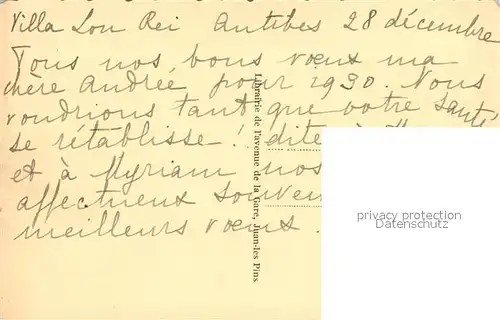 Villa Lou Rei Antibes 28 décembre
Tous nos bons vœux ma
chère Andrée pour 1930. Nous
voudrions tant que votre santé
se rétablisse! dite à
et à Myriam nos
affectueux souven
meilleurs vœux.
Librairie de l'avenue de la Gare, Juan-les Pins
privacy protection
Datenschutz